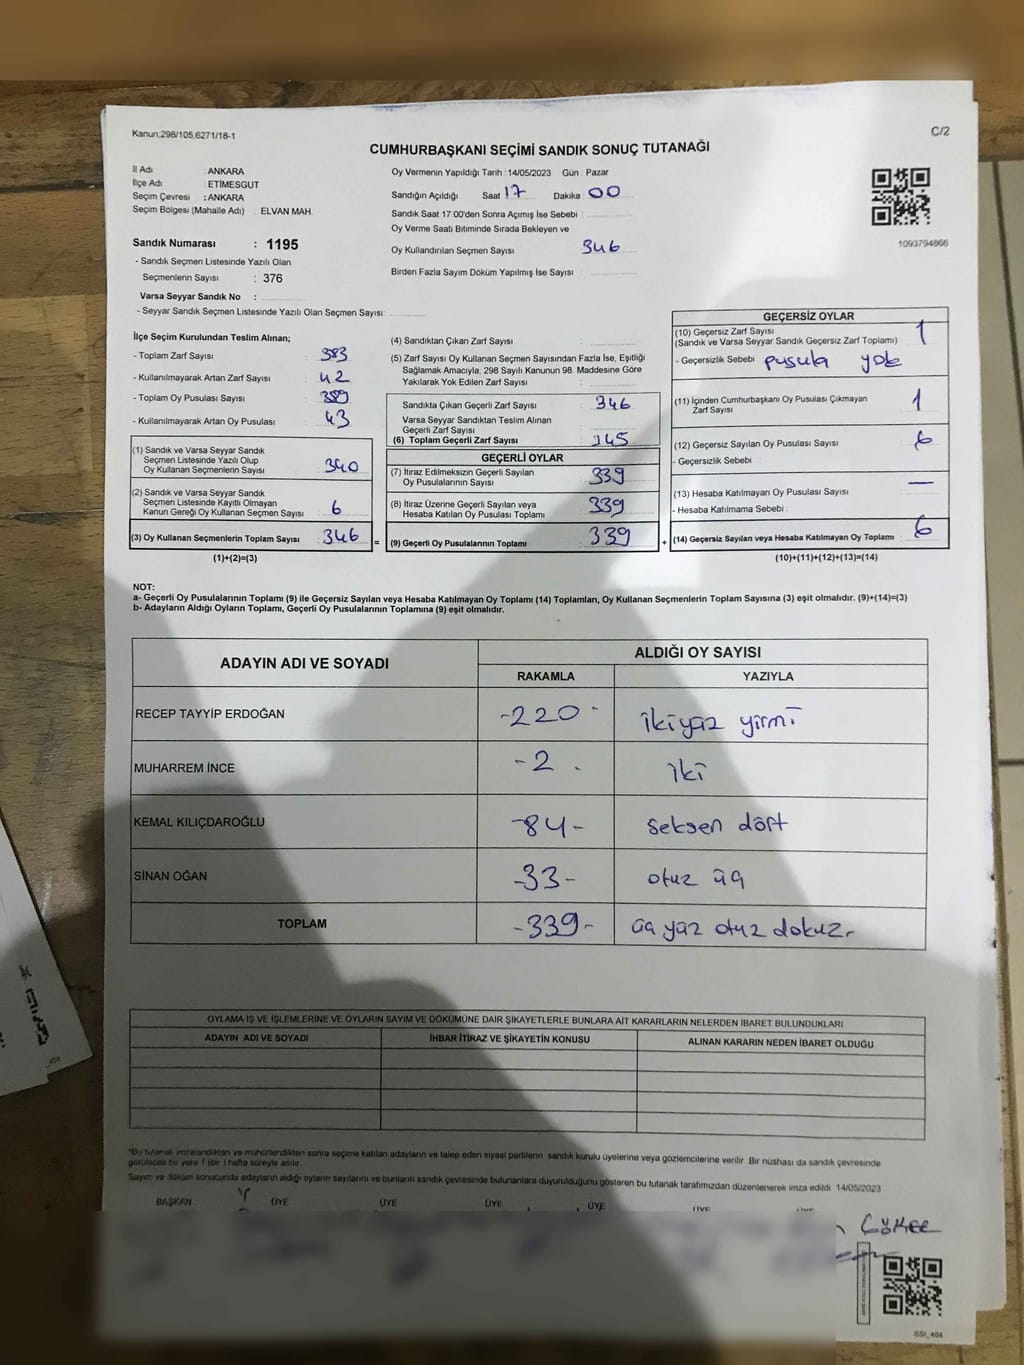 Kanun:298/105,6271/18-1
C/2
CUMHURBAŞKANI SEÇİMİ SANDIK SONUÇ TUTANAĞI
İl Adı : ANKARA
İlçe Adı : ETİMESGUT
Seçim Çevresi : ANKARA
Seçim Bölgesi (Mahalle Adı) : ELVAN MAH.
Oy Vermenin Yapıldığı Tarih : 14/05/2023 Gün : Pazar
Sandığın Açıldığı Saat 17 Dakika : 00
Sandık Saat 17:00'den Sonra Açımış İse Sebebi :
Oy Verme Saati Bitiminde Sırada Bekleyen ve
Oy Kullandırılan Seçmen Sayısı 346
Birden Fazla Sayım Döküm Yapılmış İse Sayısı :
1093794866
Sandık Numarası : 1195
- Sandık Seçmen Listesinde Yazılı Olan
Seçmenlerin Sayısı : 376
Varsa Seyyar Sandık No :
- Seyyar Sandık Seçmen Listesinde Yazılı Olan Seçmen Sayısı:
İlçe Seçim Kurulundan Teslim Alınan;
- Toplam Zarf Sayısı : 383
- Kullanılmayarak Artan Zarf Sayısı : 42
- Toplam Oy Pusulası Sayısı : 389
- Kullanılmayarak Artan Oy Pusulası : 43
(1) Sandık ve Varsa Seyyar Sandık
Seçmen Listesinde Yazılı Olup
Oy Kullanan Seçmenlerin Sayısı 340
(2) Sandık ve Varsa Seyyar Sandık
Seçmen Listesinde Kayıtlı Olmayan
Kanun Gereği Oy Kullanan Seçmen Sayısı 6
(3) Oy Kullanan Seçmenlerin Toplam Sayısı 346 =
(1)+(2)=(3)
(4) Sandıktan Çıkan Zarf Sayısı :
(5) Zarf Sayısı Oy Kullanan Seçmen Sayısından Fazla İse, Eşitliği
Sağlamak Amacıyla, 298 Sayılı Kanunun 98. Maddesine Göre
Yakılarak Yok Edilen Zarf Sayısı :
Sandıkta Çıkan Geçerli Zarf Sayısı : 346
Varsa Seyyar Sandıktan Teslim Alınan
Geçerli Zarf Sayısı
(6) Toplam Geçerli Zarf Sayısı : 345
GEÇERLİ OYLAR
(7) İtiraz Edilmeksizin Geçerli Sayılan
Oy Pusulalarının Sayısı 339
(8) İtiraz Üzerine Geçerli Sayılan veya
Hesaba Katılan Oy Pusulası Toplamı 339
(9) Geçerli Oy Pusulalarının Toplamı 339 +
GEÇERSİZ OYLAR
(10) Geçersiz Zarf Sayısı
(Sandık ve Varsa Seyyar Sandık Geçersiz Zarf Toplamı) 1
- Geçersizlik Sebebi : pusula yok
(11) İçinden Cumhurbaşkanı Oy Pusulası Çıkmayan
Zarf Sayısı 1
(12) Geçersiz Sayılan Oy Pusulası Sayısı 6
- Geçersizlik Sebebi :
(13) Hesaba Katılmayan Oy Pusulası Sayısı —
- Hesaba Katılmama Sebebi :
(14) Geçersiz Sayılan veya Hesaba Katılmayan Oy Toplamı 6
(10)+(11)+(12)+(13)=(14)
NOT:
a- Geçerli Oy Pusulalarının Toplamı (9) ile Geçersiz Sayılan veya Hesaba Katılmayan Oy Toplamı (14) Toplamları, Oy Kullanan Seçmenlerin Toplam Sayısına (3) eşit olmalıdır. (9)+(14)=(3)
b- Adayların Aldığı Oyların Toplamı, Geçerli Oy Pusulalarının Toplamına (9) eşit olmalıdır.
ADAYIN ADI VE SOYADI ALDIĞI OY SAYISI
RAKAMLA YAZIYLA
RECEP TAYYİP ERDOĞAN -220- ikiyüz yirmi
MUHARREM İNCE -2. iki
KEMAL KILIÇDAROĞLU -84- Seksen dört
SİNAN OĞAN -33- otuz üç
TOPLAM -339- üç yüz otuz dokuz.
OYLAMA İŞ VE İŞLEMLERİNE VE OYLARIN SAYIM VE DÖKÜMÜNE DAİR ŞİKAYETLERLE BUNLARA AİT KARARLARIN NELERDEN İBARET BULUNDUKLARI
ADAYIN ADI VE SOYADI İHBAR İTİRAZ VE ŞİKAYETİN KONUSU ALINAN KARARIN NEDEN İBARET OLDUĞU
*Bu tutanak imzalandıktan ve mühürlendikten sonra seçime katılan adayların ve talep eden siyasi partilerin sandık kurulu üyelerine veya gözlemcilerine verilir. Bir nüshası da sandık çevresinde
görülecek bir yere 1 (bir) hafta süreyle asılır.
Sayım ve döküm sonucunda adayların aldığı oyların sayılarını ve bunların sandık çevresinde bulunanlara duyurulduğunu gösteren bu tutanak tarafımızdan düzenlenerek imza edildi. 14/05/2023
BAŞKAN ÜYE ÜYE ÜYE ÜYE ÜYE ÜYE